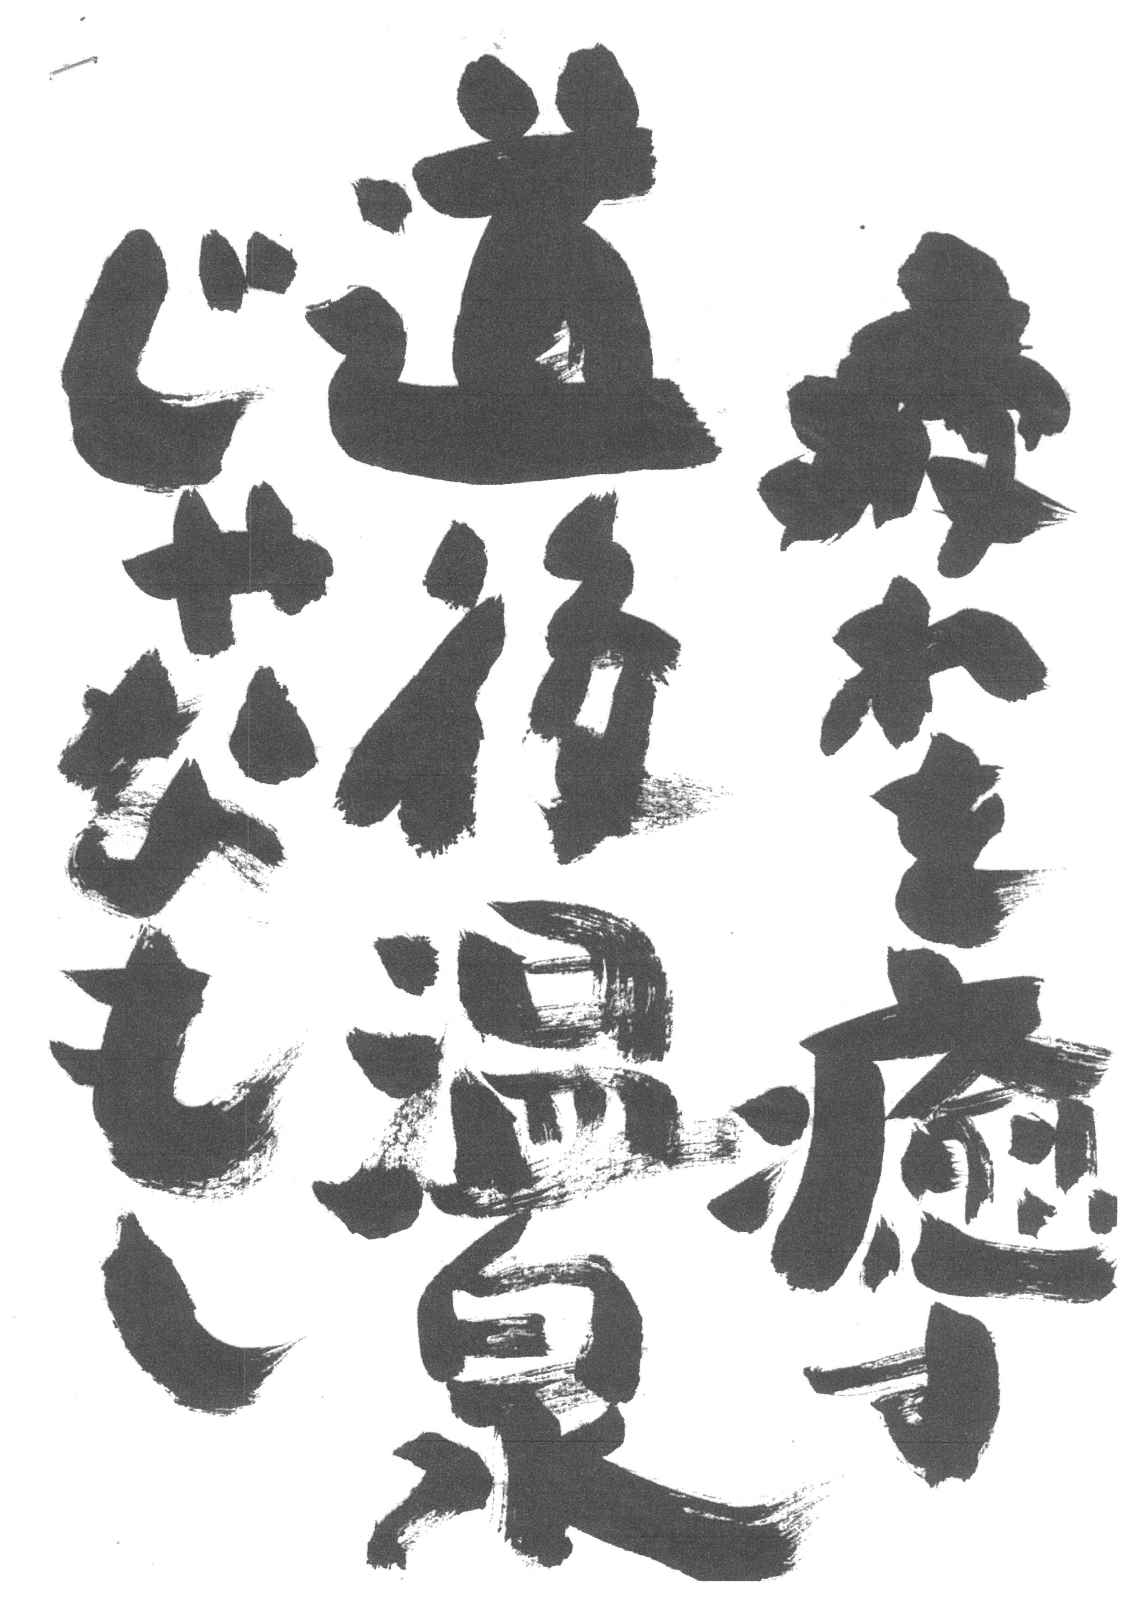 疲れを癒す
道後温泉
じゃなもし